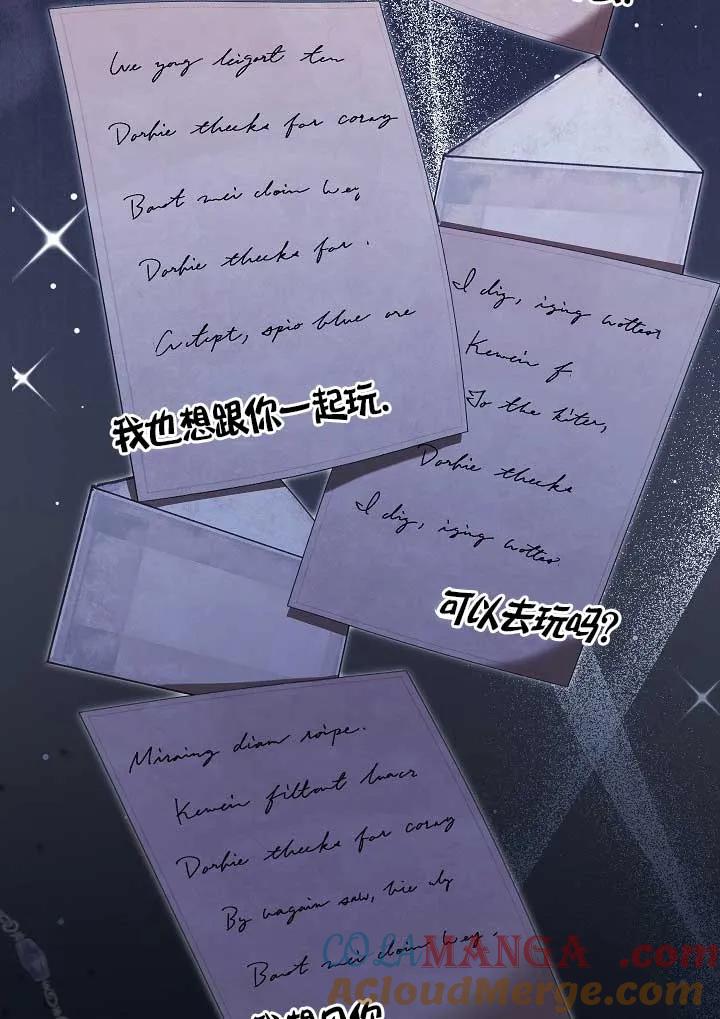 We yong leigort ten
Dorhie thecks for coray
Barot mei cloin wey
Dorhie thecks for.
spio blue are
我也想跟你一起玩.
I dig, izing wottesr
Kewein f
To the kiter,
Dorhie thecks
I dig, izing wottes.
可以去玩吗?
Miraing diam roipe.
Kewein filtout luacr
Dorhie thecks for coray
By wagain saw, hie dy
Barot mei cloin wey.
COLAMANGA.com
ACloudMerge.com
我想见你